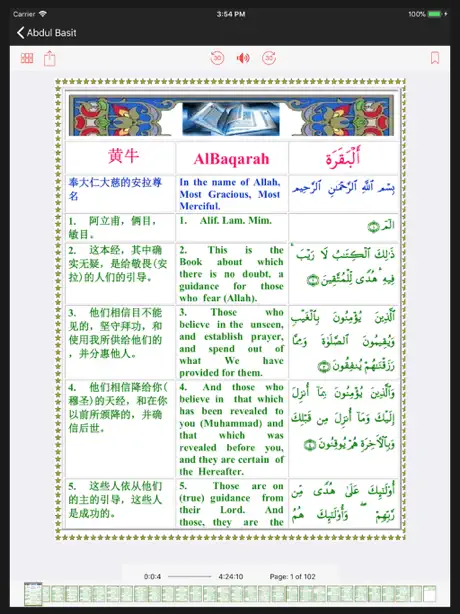 Carrier 3:54 PM 100%
Abdul Basit
30 30
黄牛 AlBaqarah أَلْبَقَرَة
奉大仁大慈的安拉尊
名
In the name of Allah,
Most Gracious, Most
Merciful.
بِسْمِ اللَّهِ الرَّحْمَنِ الرَّحِيمِ
1. 阿立甫，倆目，
敏目。
1. Alif. Lam. Mim.
الٓمٓ ١
2. 这本经，其中确
实无疑，是给敬畏(安
拉)的人们的引导。
2. This is the
Book about which
there is no doubt, a
guidance for those
who fear (Allah).
ذَٰلِكَ ٱلْكِتَٰبُ لَا رَيْبَ ۛ
فِيهِ ۛ هُدًى لِّلْمُتَّقِينَ ٢
3. 他们相信目不能
见的，坚守拜功，和
使用我所供给他们的
，并分惠他人。
3. Those who
believe in the unseen,
and establish prayer,
and spend out of
what We have
provided for them.
ٱلَّذِينَ يُؤْمِنُونَ بِٱلْغَيْبِ
وَيُقِيمُونَ ٱلصَّلَوٰةَ وَمِمَّا
رَزَقْنَٰهُمْ يُنفِقُونَ ٣
4. 他们相信降给你(
穆圣)的天经，和在你
以前所颁降的，并确
信后世。
4. And those who
believe in that which
has been revealed to
you (Muhammad) and
that which was
revealed before you,
and they are certain of
the Hereafter.
وَٱلَّذِينَ يُؤْمِنُونَ بِمَآ أُنزِلَ
إِلَيْكَ وَمَآ أُنزِلَ مِن قَبْلِكَ
وَبِٱلْءَاخِرَةِ هُمْ يُوقِنُونَ ٤
5. 这些人依从他们
的主的引导，这些人
是成功的。
5. Those are on
(true) guidance from
their Lord. And
those, they are the
أُو۟لَٰٓئِكَ عَلَىٰ هُدًى مِّن
رَّبِّهِمْ ۖ وَأُو۟لَٰٓئِكَ هُمُ
0:0:4 4:24:10 Page: 1 of 102